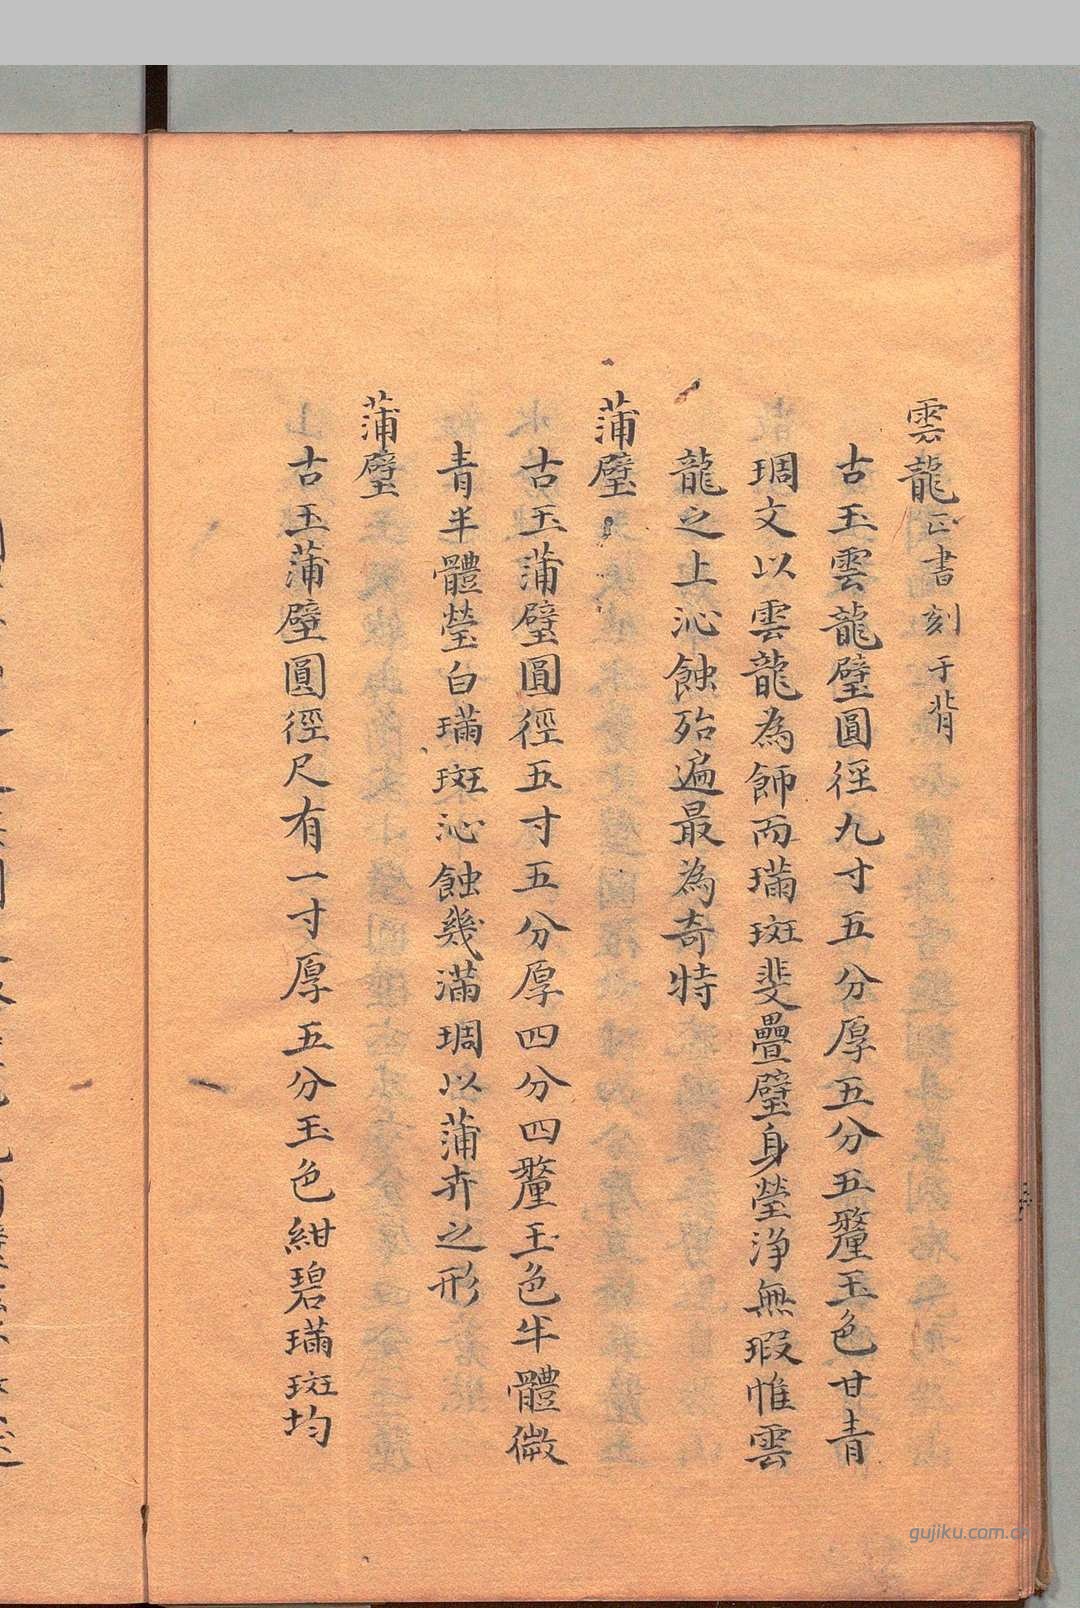 雲龍正書刻于背
古玉雲龍璧圓徑九寸五分厚五分五釐玉色甘青
琱文以雲龍為飾而璊斑斐疊璧身瑩淨無瑕惟雲
龍之上沁蝕殆遍最為奇特
蒲璧
古玉蒲璧圓徑五寸五分厚四分四釐玉色半體微
青半體瑩白璊斑沁蝕幾滿琱以蒲卉之形
蒲璧
古玉蒲璧圓徑尺有一寸厚五分玉色紺碧璊斑均
gujiku.com.cn